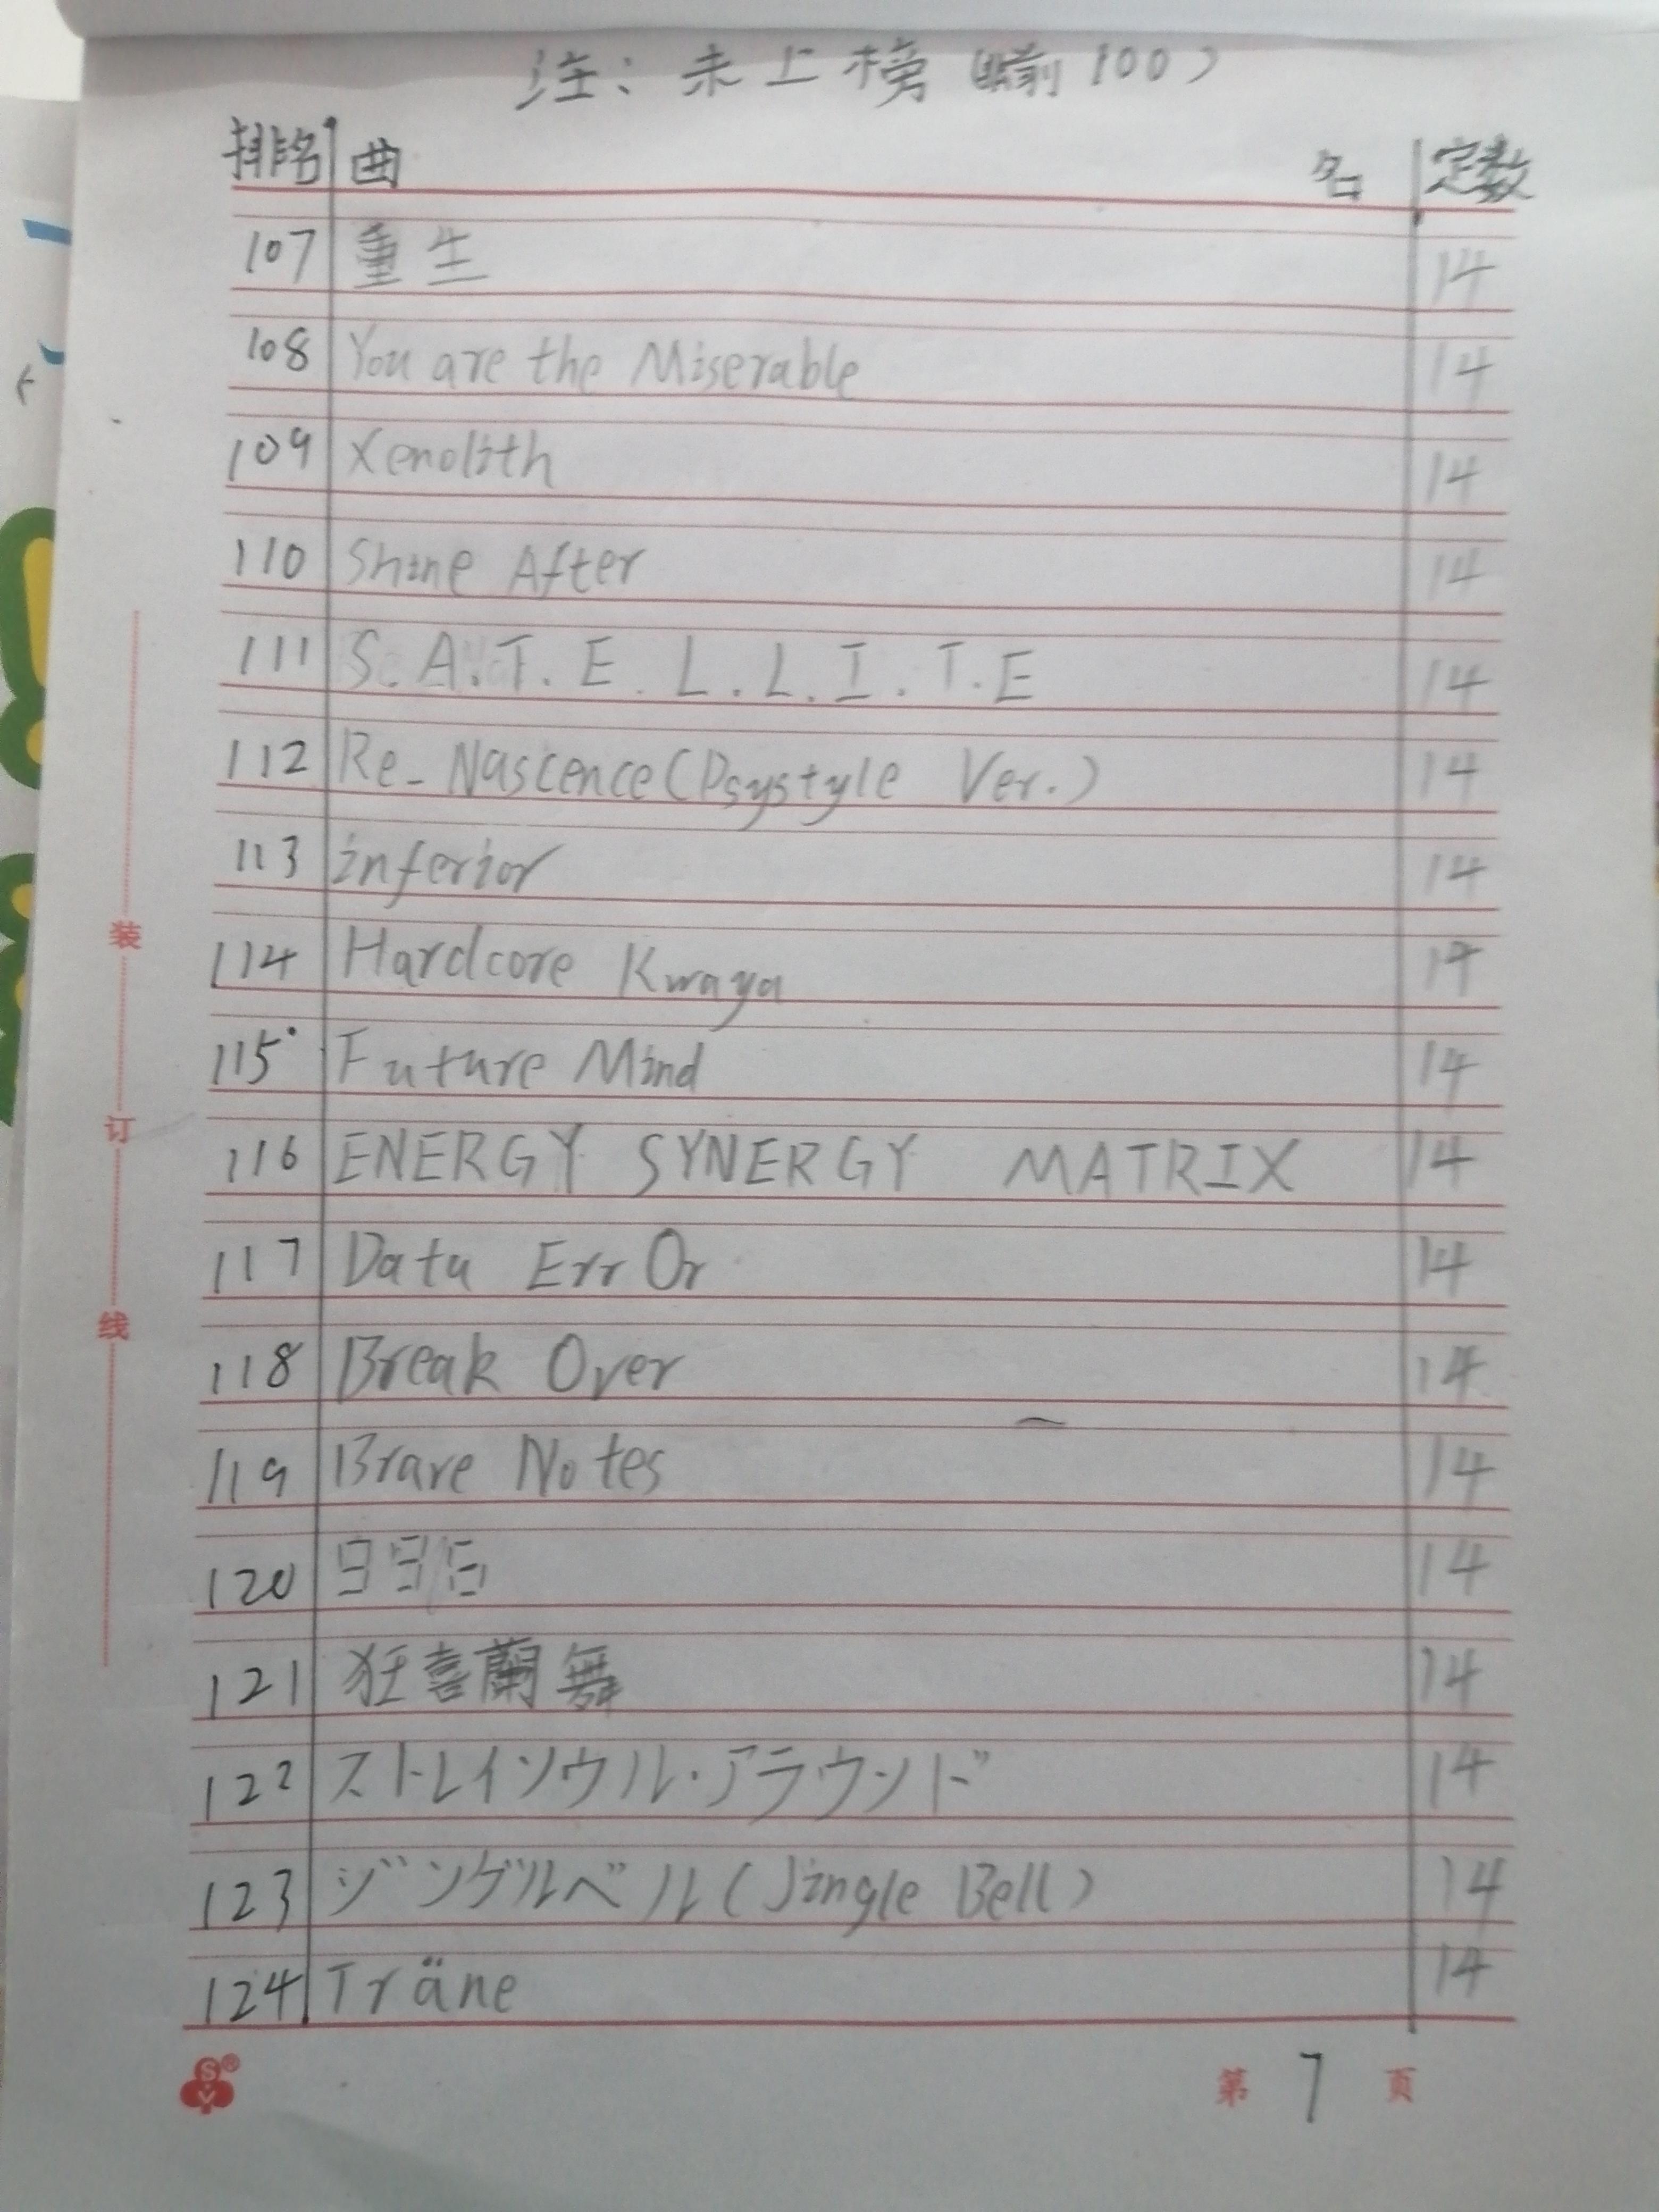 注：未上榜(前100)
排名 曲 名 定数
107 重生 14
108 You are the Miserable 14
109 Xenolith 14
110 Shine After 14
111 S.A.T.E.L.L.I.T.E 14
112 Re_Nascence(Psystyle Ver.) 14
113 inferior 14
114 Hardcore Kwaya 14
115 Future Mind 14
116 ENERGY SYNERGY MATRIX 14
117 Data ErrOr 14
118 Break Over 14
119 Brave Notes 14
120 14
121 狂喜蘭舞 14
122 ストレイソウル・アラウンド 14
123 ジングルベル(Jingle Bell) 14
124 Träne 14
装
订
线
第 7 页